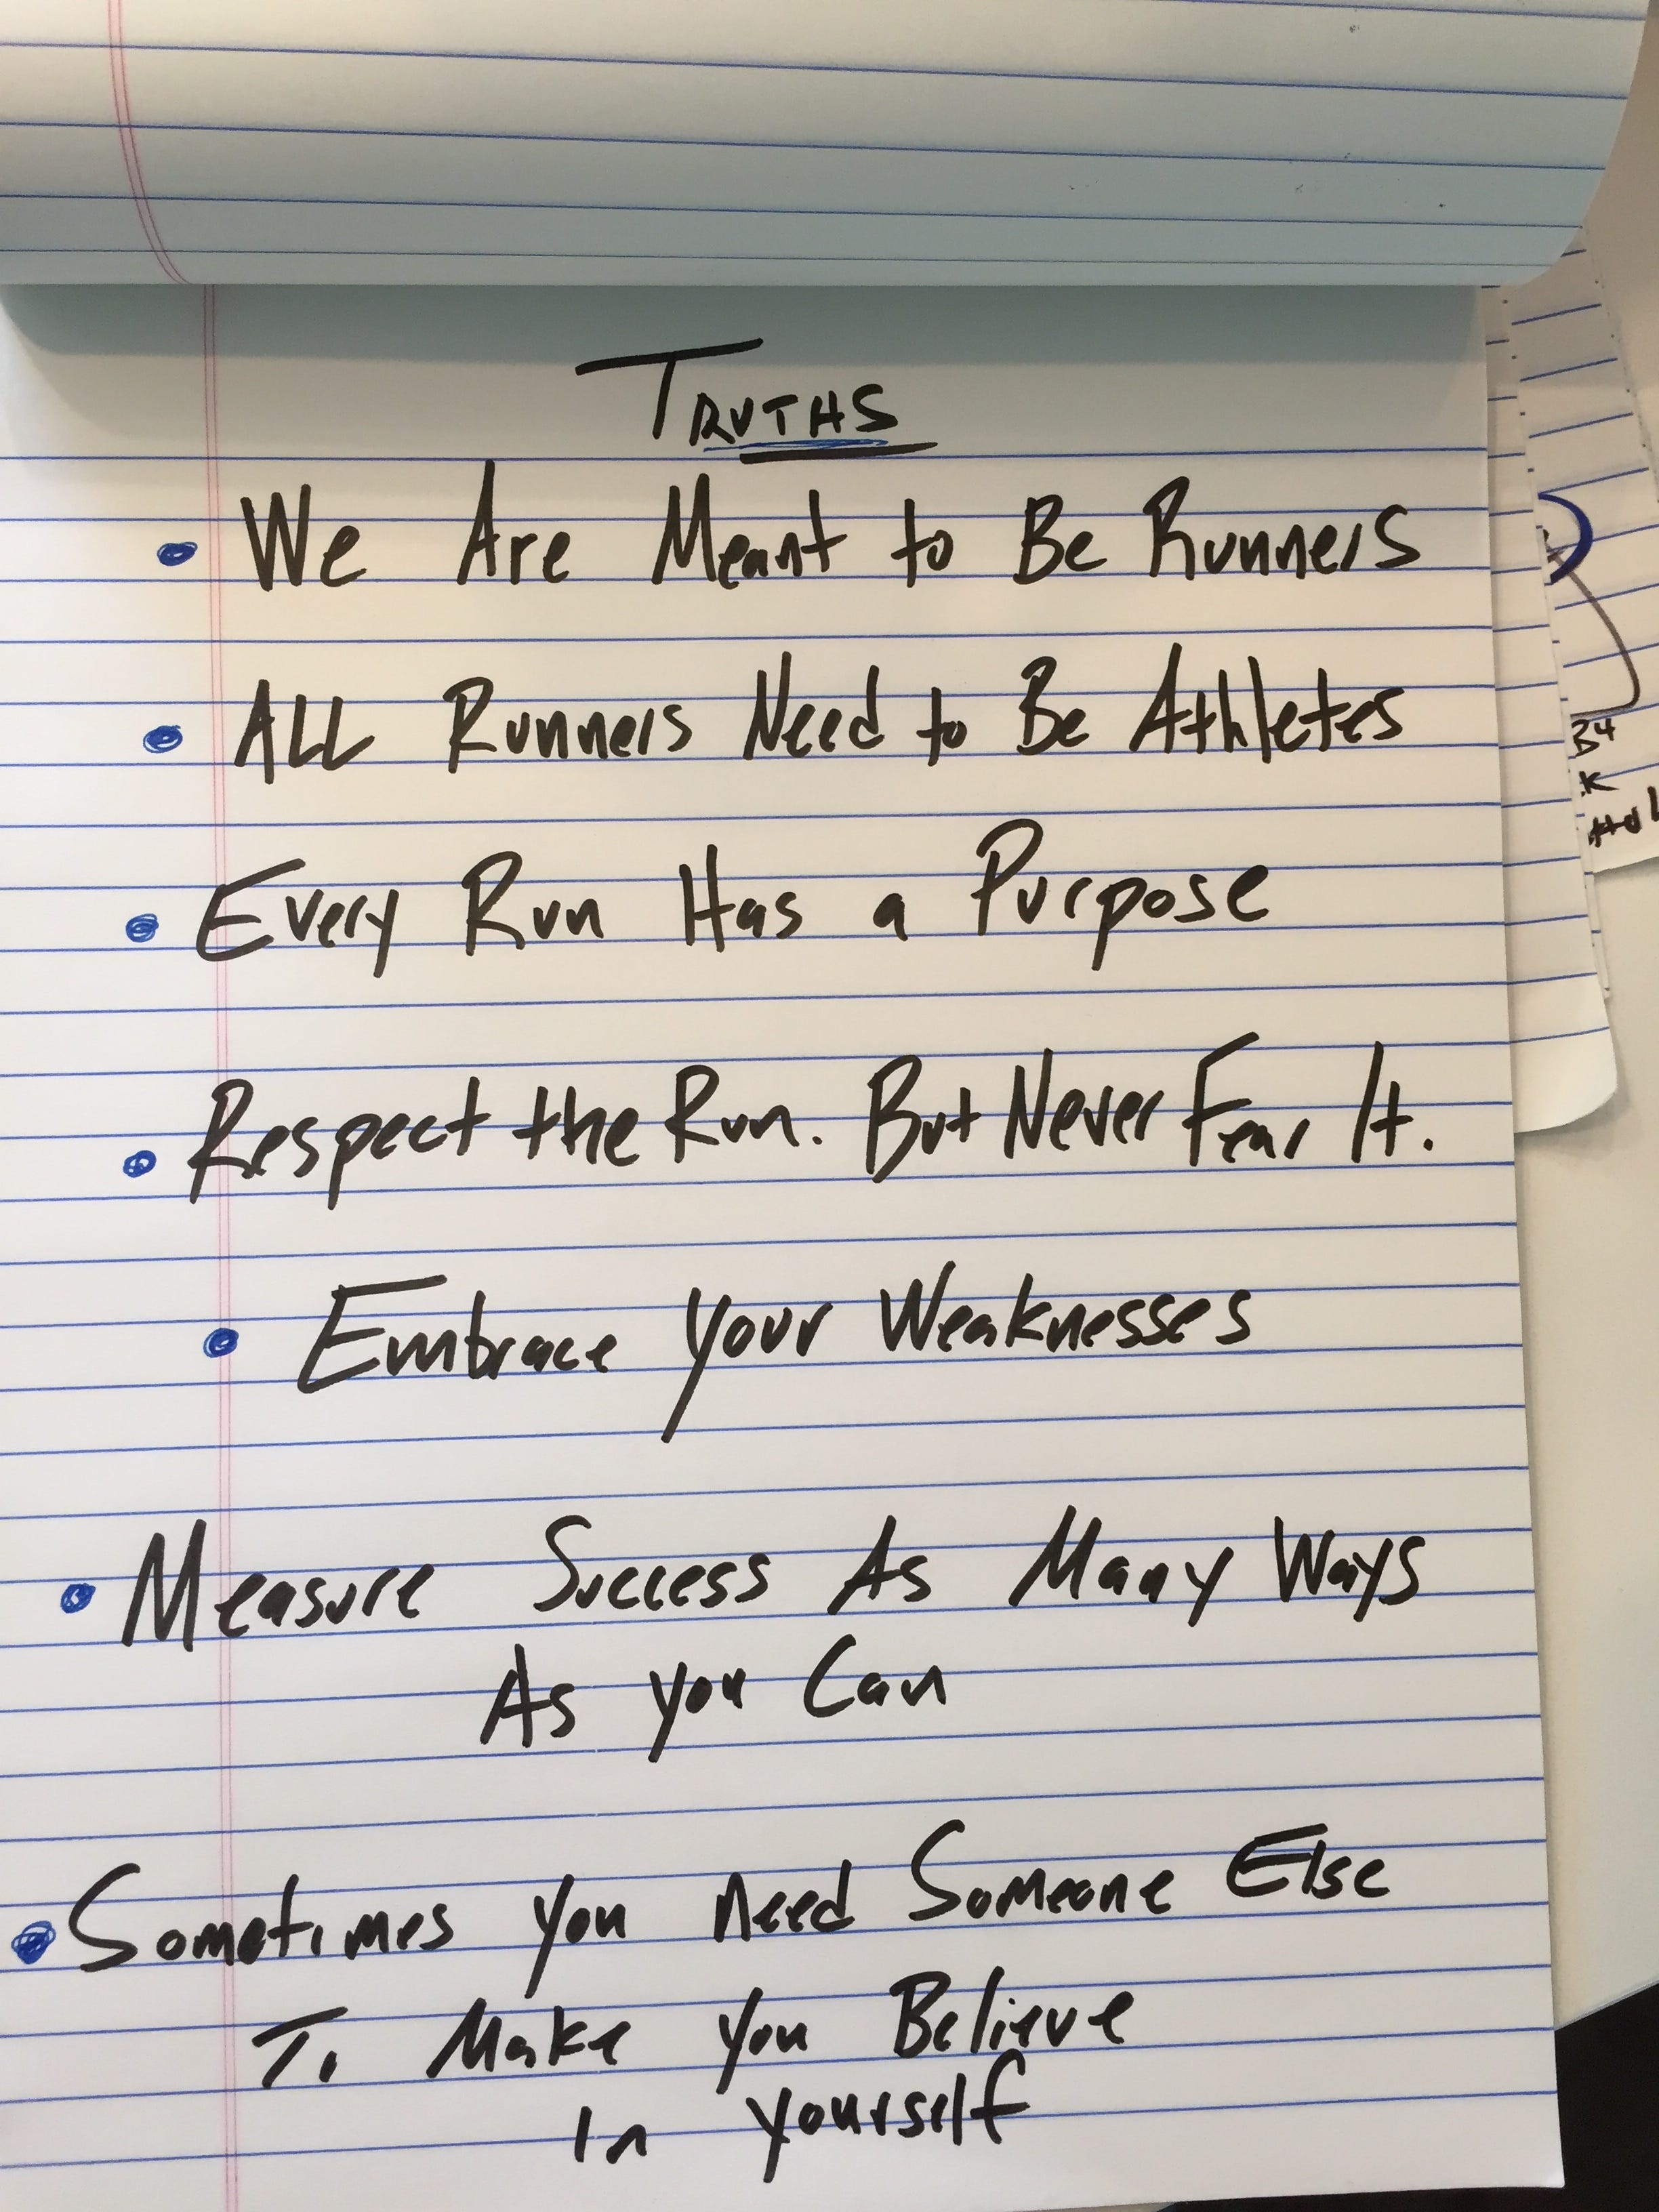 TRUTHS
• We Are Meant to Be Runners
• ALL Runners Need to Be Athletes
• Every Run Has a Purpose
• Respect the Run. But Never Fear It.
• Embrace Your Weaknesses
• Measure Success As Many Ways
As you Can
• Sometimes you need Someone Else
To Make you Believe
In yourself
B4